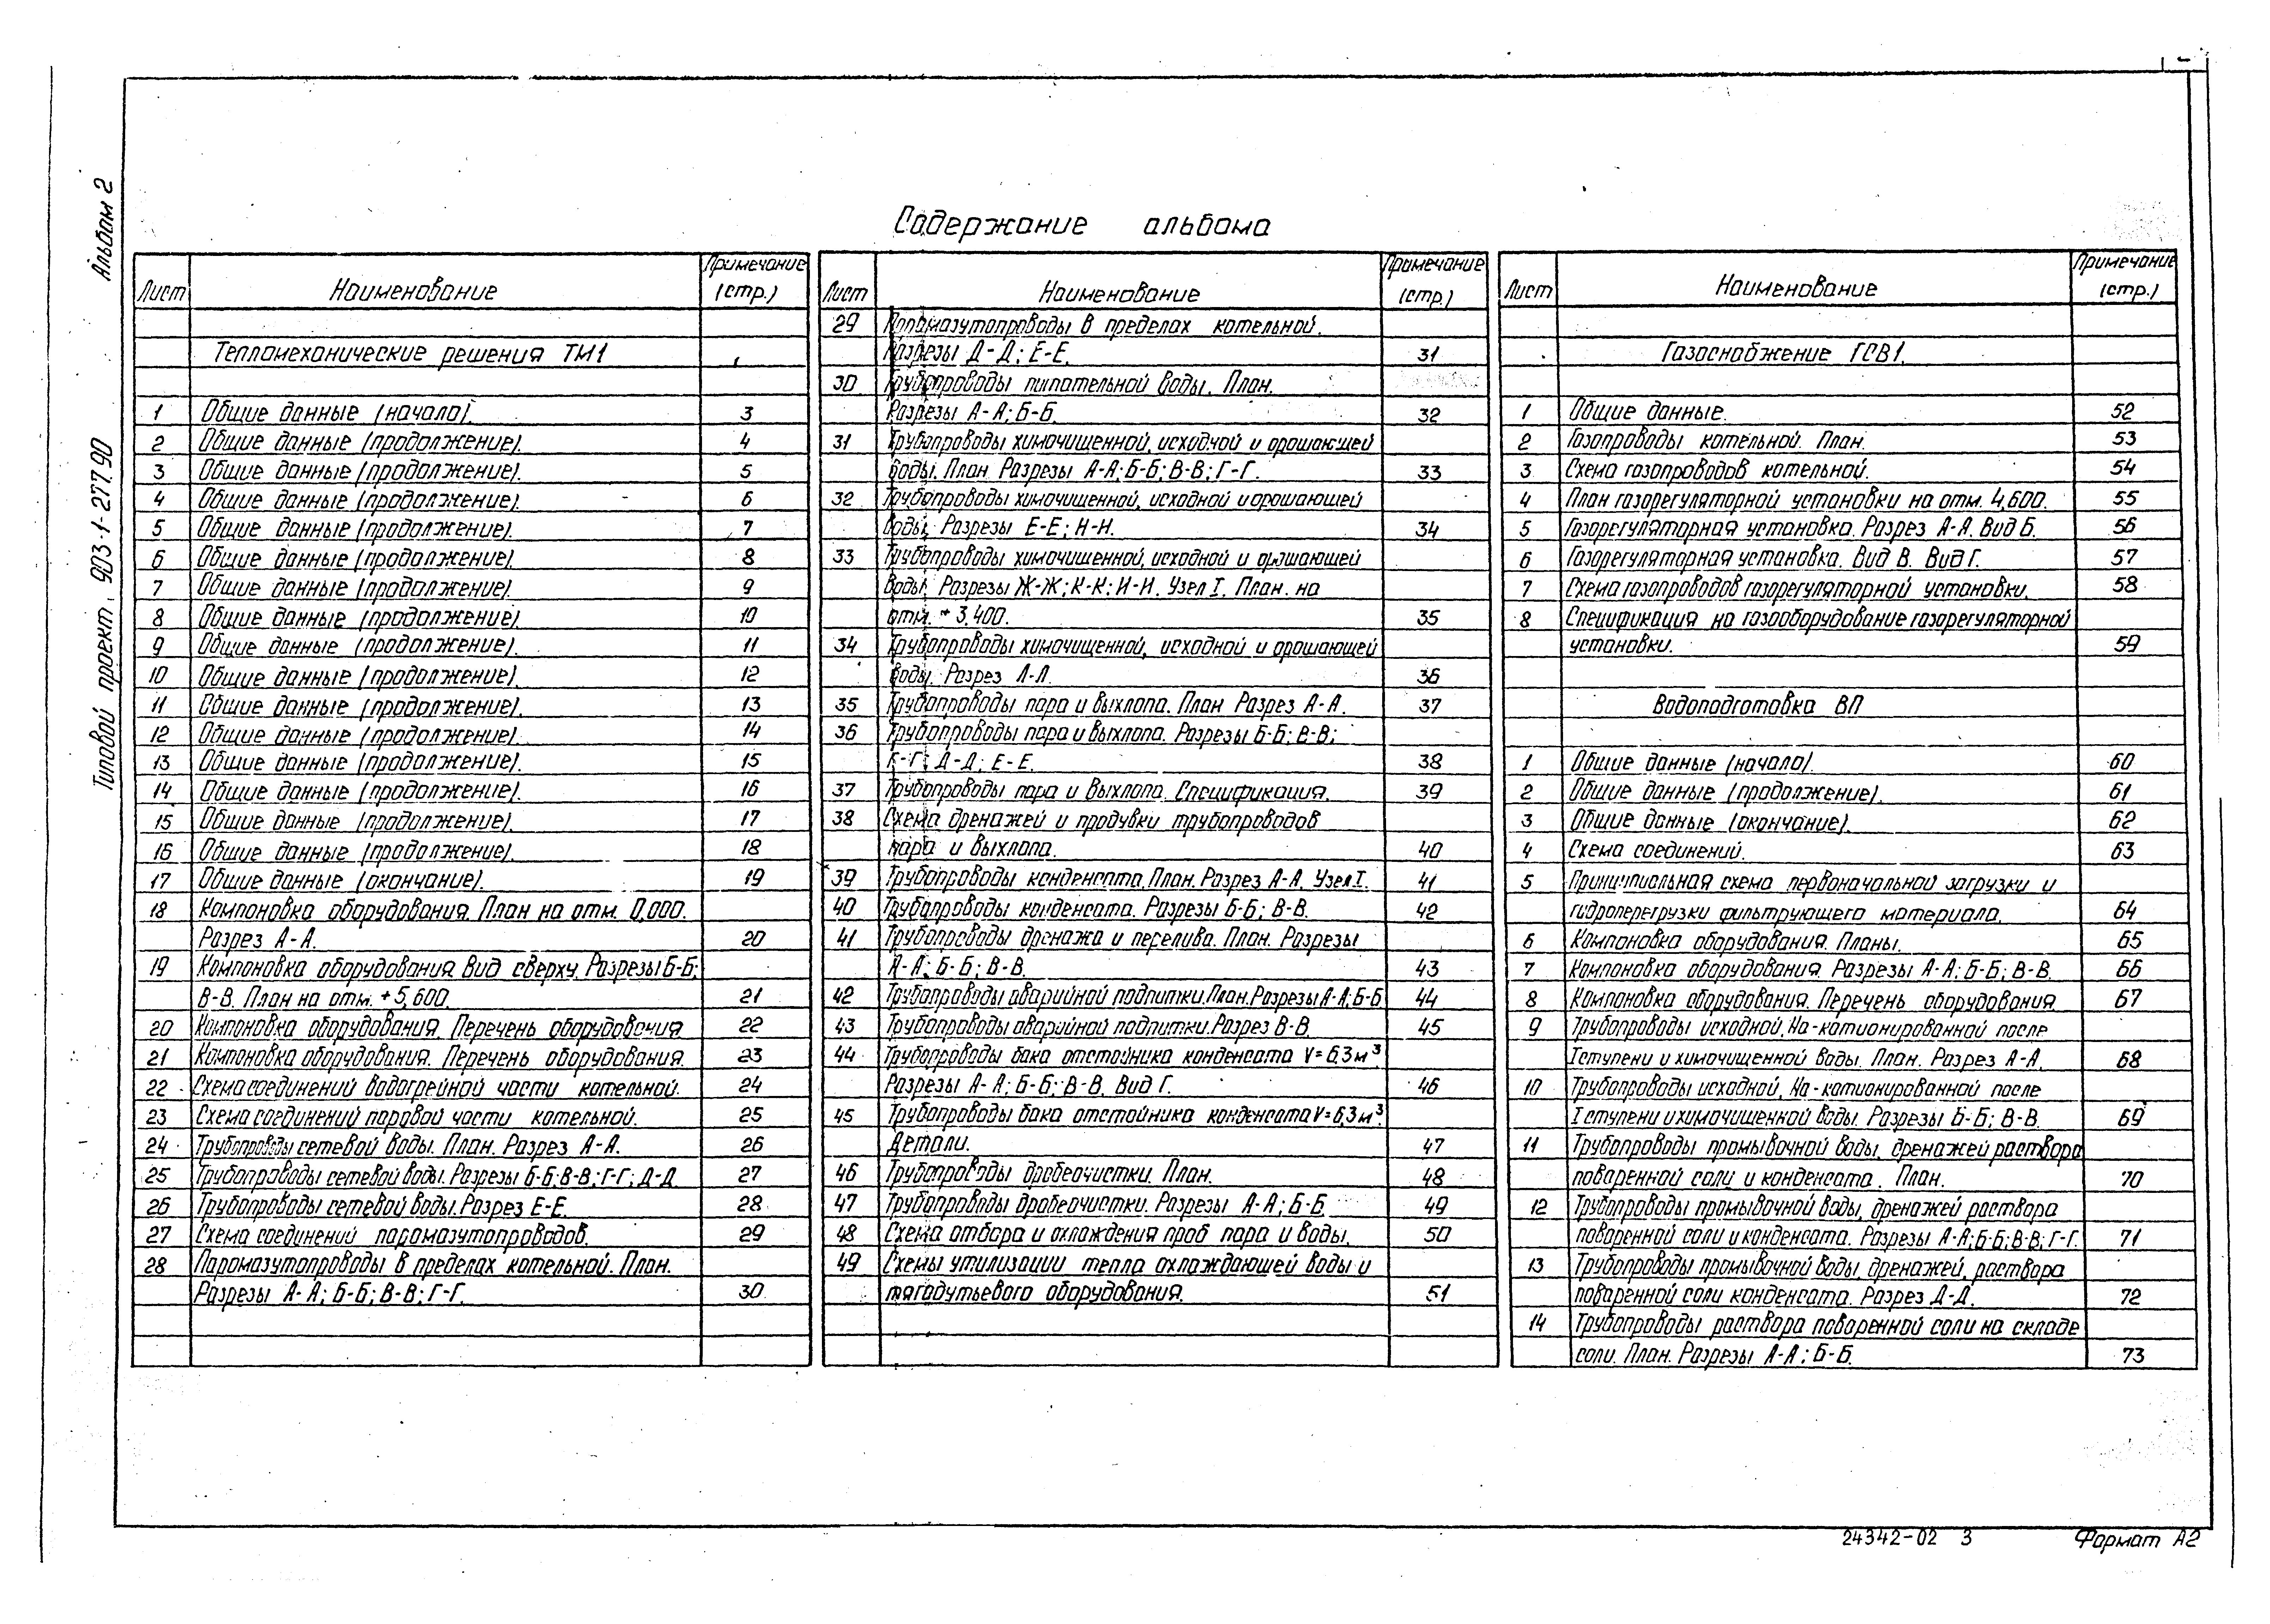 Альбом 2
Типовой проект 903-1-277.90
Содержание альбома
Лист Наименование Примечание (стр.)
Тепломеханические решения ТМ1
1 Общие данные (начало). 3
2 Общие данные (продолжение). 4
3 Общие данные (продолжение). 5
4 Общие данные (продолжение). 6
5 Общие данные (продолжение). 7
6 Общие данные (продолжение). 8
7 Общие данные (продолжение). 9
8 Общие данные (продолжение). 10
9 Общие данные (продолжение). 11
10 Общие данные (продолжение). 12
11 Общие данные (продолжение). 13
12 Общие данные (продолжение). 14
13 Общие данные (продолжение). 15
14 Общие данные (продолжение). 16
15 Общие данные (продолжение). 17
16 Общие данные (продолжение). 18
17 Общие данные (окончание). 19
18 Компоновка оборудования. План на отм. 0,000.
Разрез А-А. 20
19 Компоновка оборудования Вид сверху. Разрезы Б-Б;
В-В. План на отм. +5,600. 21
20 Компоновка оборудования. Перечень оборудования 22
21 Компоновка оборудования. Перечень оборудования. 23
22 Схема соединений водогрейной части котельной. 24
23 Схема соединений паровой части котельной. 25
24 Трубопроводы сетевой воды. План. Разрез А-А. 26
25 Трубопроводы сетевой воды. Разрезы Б-Б; В-В; Г-Г; Д-Д. 27
26 Трубопроводы сетевой воды. Разрез Е-Е. 28
27 Схема соединений паромазутопроводов. 29
28 Паромазутопроводы в пределах котельной. План.
Разрезы А-А; Б-Б; В-В; Г-Г. 30
Лист Наименование Примечание (стр.)
29 Паромазутопроводы в пределах котельной.
Разрезы Д-Д; Е-Е. 31
30 Трубопроводы питательной воды. План.
Разрезы А-А; Б-Б. 32
31 Трубопроводы химочищенной, исходной и орошающей
воды. План. Разрезы А-А; Б-Б; В-В; Г-Г. 33
32 Трубопроводы химочищенной, исходной и орошающей
воды. Разрезы Е-Е; Н-Н. 34
33 Трубопроводы химочищенной, исходной и орошающей
воды. Разрезы Ж-Ж; К-К; И-И. Узел I. План. на
отм. + 3,400. 35
34 Трубопроводы химочищенной, исходной и орошающей
воды. Разрез Л-Л. 36
35 Трубопроводы пара и выхлопа. План Разрез А-А. 37
36 Трубопроводы пара и выхлопа. Разрезы Б-Б; В-В;
Г-Г; Д-Д; Е-Е. 38
37 Трубопроводы пара и выхлопа. Спецификация. 39
38 Схема дренажей и продувки трубопроводов
пара и выхлопа. 40
39 Трубопроводы конденсата. План. Разрез А-А. Узел I. 41
40 Трубопроводы конденсата. Разрезы Б-Б; В-В. 42
41 Трубопроводы дренажа и перелива. План. Разрезы
А-А; Б-Б; В-В. 43
42 Трубопроводы аварийной подпитки. План. Разрезы А-А; Б-Б 44
43 Трубопроводы аварийной подпитки. Разрез В-В. 45
44 Трубопроводы бака отстойника конденсата V=6,3м³
Разрезы А-А; Б-Б; В-В. Вид Г. 46
45 Трубопроводы бака отстойника конденсата V=6,3м³.
Детали. 47
46 Трубопроводы дробеочистки. План. 48
47 Трубопроводы дробеочистки. Разрезы А-А; Б-Б 49
48 Схема отбора и охлаждения проб пара и воды. 50
49 Схемы утилизации тепла охлаждающей воды и
тягодутьевого оборудования. 51
Лист Наименование Примечание (стр.)
Газоснабжение ГСВ1.
1 Общие данные. 52
2 Газопроводы котельной. План. 53
3 Схема газопроводов котельной. 54
4 План газорегуляторной установки на отм. 4,600. 55
5 Газорегуляторная установка. Разрез А-А. Вид Б. 56
6 Газорегуляторная установка. Вид В. Вид Г. 57
7 Схема газопроводов газорегуляторной установки. 58
8 Спецификация на газооборудование газорегуляторной
установки. 59
Водоподготовка ВП
1 Общие данные (начало). 60
2 Общие данные (продолжение). 61
3 Общие данные (окончание). 62
4 Схема соединений. 63
5 Принципиальная схема первоначальной загрузки и
гидроперегрузки фильтрующего материала. 64
6 Компоновка оборудования. Планы. 65
7 Компоновка оборудования. Разрезы А-А; Б-Б; В-В. 66
8 Компоновка оборудования. Перечень оборудования. 67
9 Трубопроводы исходной, Na-катионированной после
I ступени и химочищенной воды. План. Разрез А-А. 68
10 Трубопроводы исходной, Na-катионированной после
I ступени и химочищенной воды. Разрезы Б-Б; В-В. 69
11 Трубопроводы промывочной воды, дренажей раствора
поваренной соли и конденсата. План. 70
12 Трубопроводы промывочной воды, дренажей раствора
поваренной соли и конденсата. Разрезы А-А; Б-Б; В-В; Г-Г. 71
13 Трубопроводы промывочной воды, дренажей, раствора
поваренной соли конденсата. Разрез Д-Д. 72
14 Трубопроводы раствора поваренной соли на складе
соли. План. Разрезы А-А; Б-Б. 73
24342-02 3
Формат А2